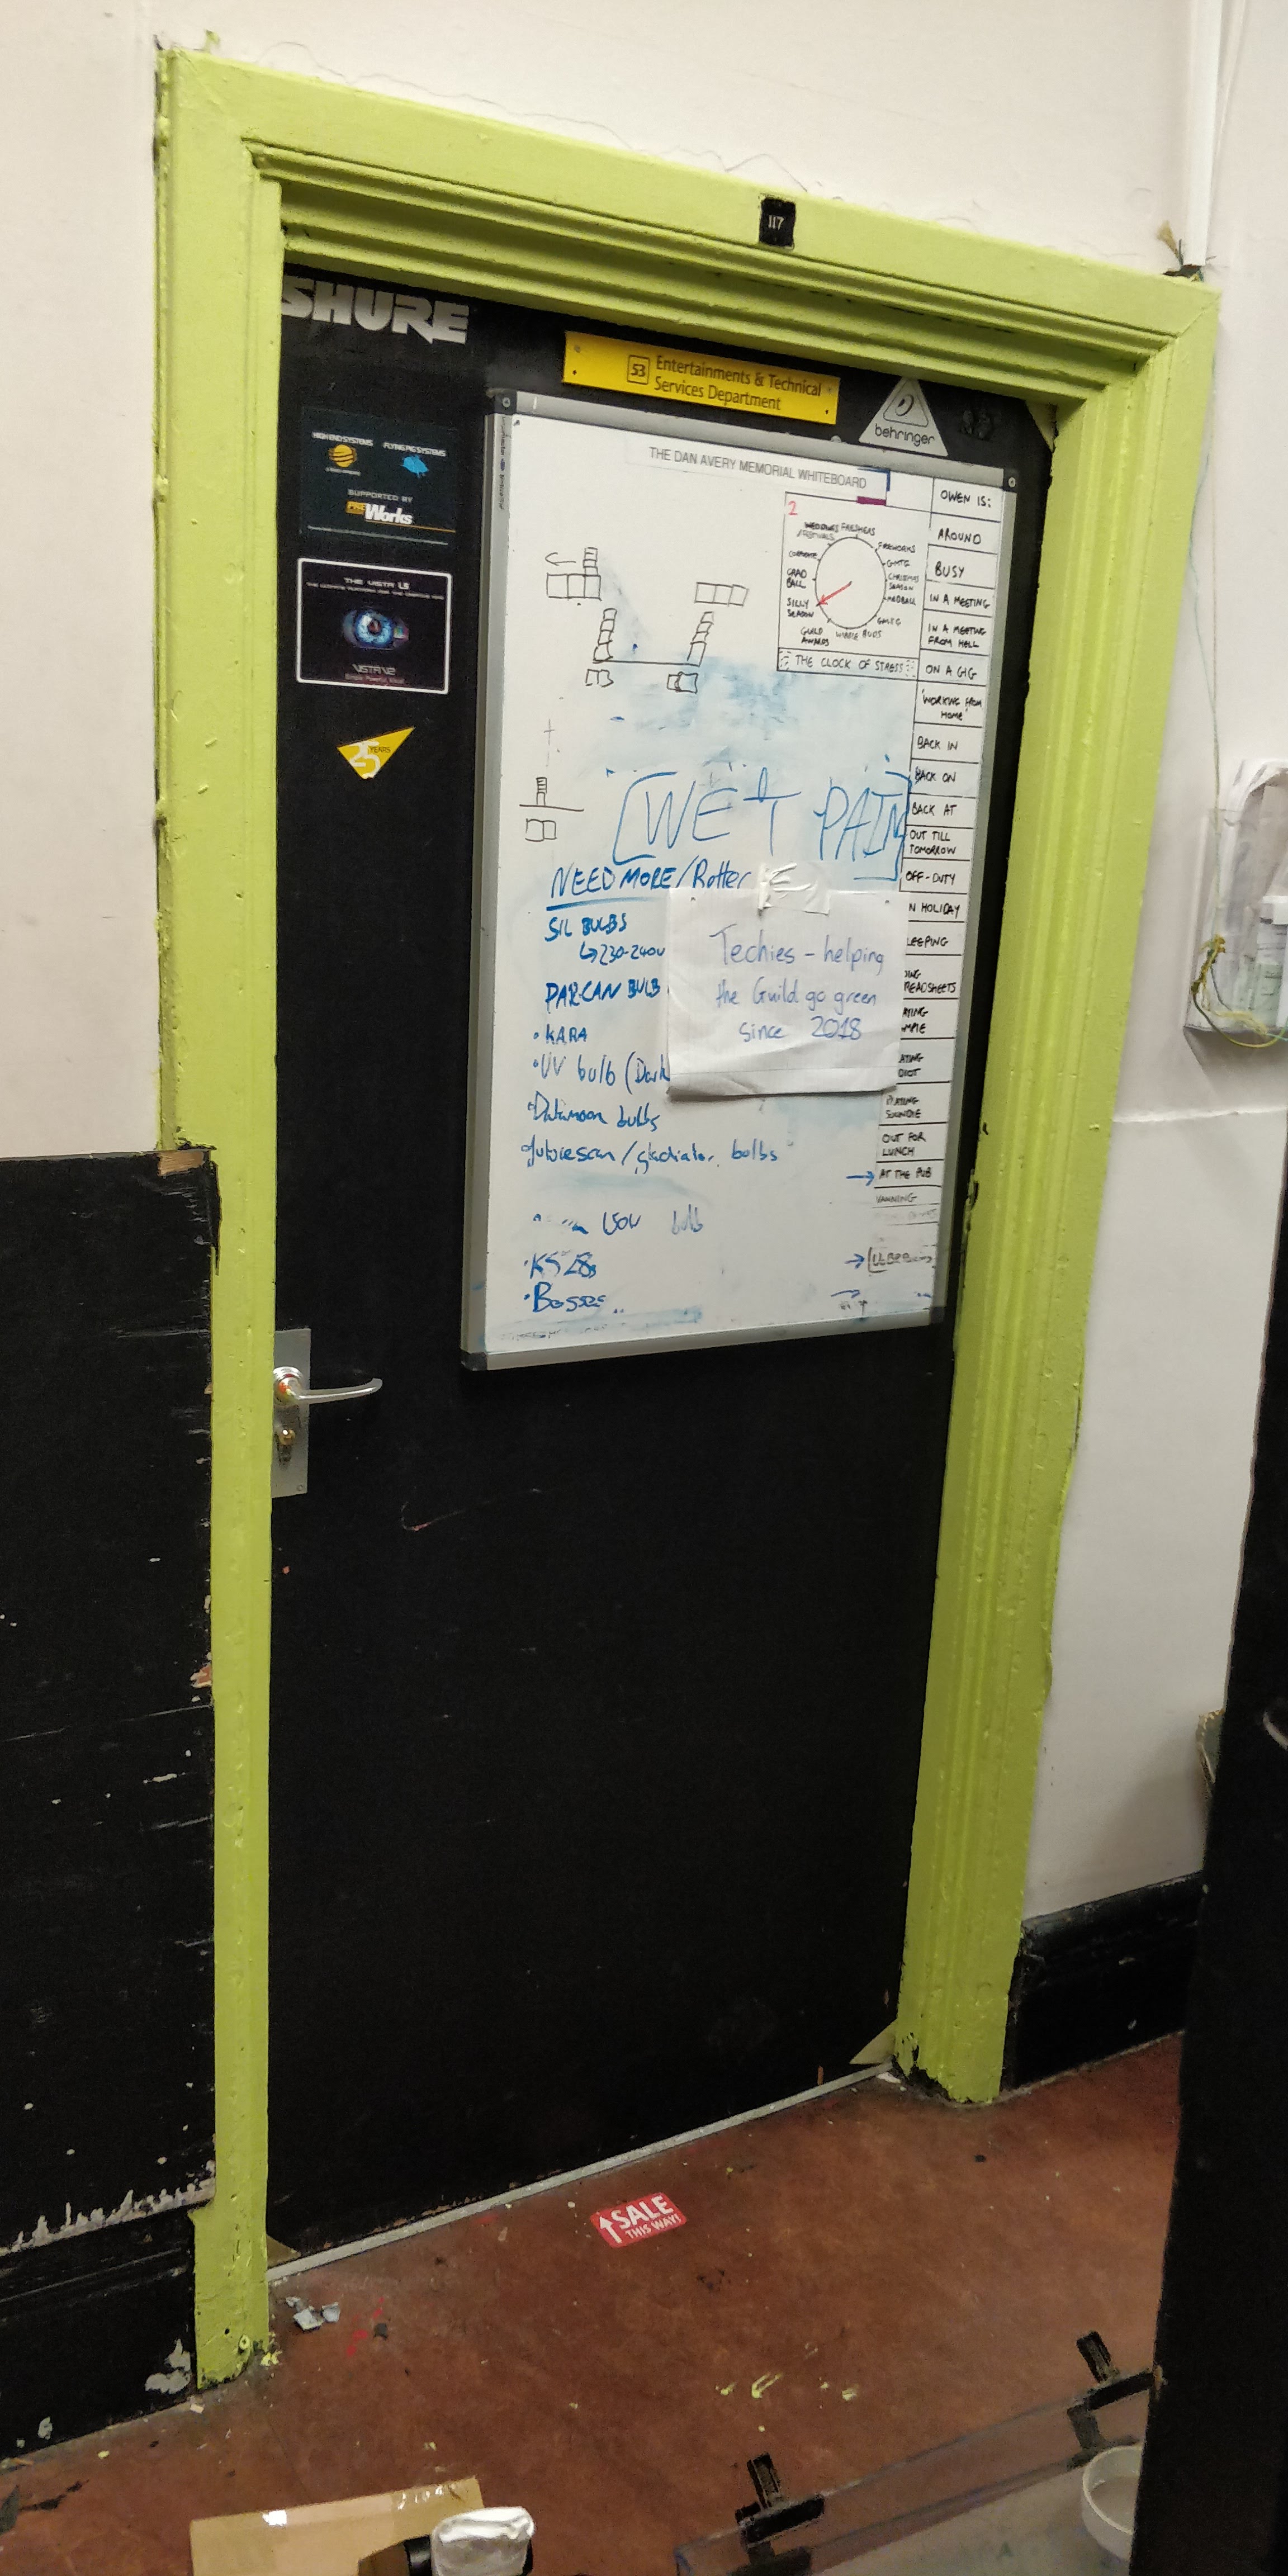 117
SHURE
53
Entertainments & Technical
Services Department
behringer
HIGH END SYSTEMS
FLYING PIG SYSTEMS
SUPPORTED BY
PRE Works
THE VISTA
VISTA V2
25 YEARS
THE DAN AVERY MEMORIAL WHITEBOARD
2
FRESHERS
FIREWORKS
GMTG
CHRISTMAS
SEASON
MEDBALL
GMTG
GUILD
AWARDS
SILLY
SEASON
GRAD
BALL
CORPORATE
THE CLOCK OF STRESS
OWEN IS:
AROUND
BUSY
IN A MEETING
IN A MEETING
FROM HELL
ON A GIG
'WORKING FROM
HOME'
BACK IN
BACK ON
BACK AT
OUT TILL
TOMORROW
OFF-DUTY
N HOLIDAY
LEEPING
OUT FOR
LUNCH
AT THE PUB
VANNING
WET PAIN
NEED MORE/Rotter
SIL BULBS
↳230-240V
PARCAN BULB
• KARA
• UV bulb (Dark
• Datamoon bulbs
bulbs
bulb
Techies - helping
the Guild go green
since 2018
↑SALE
THIS WAY!